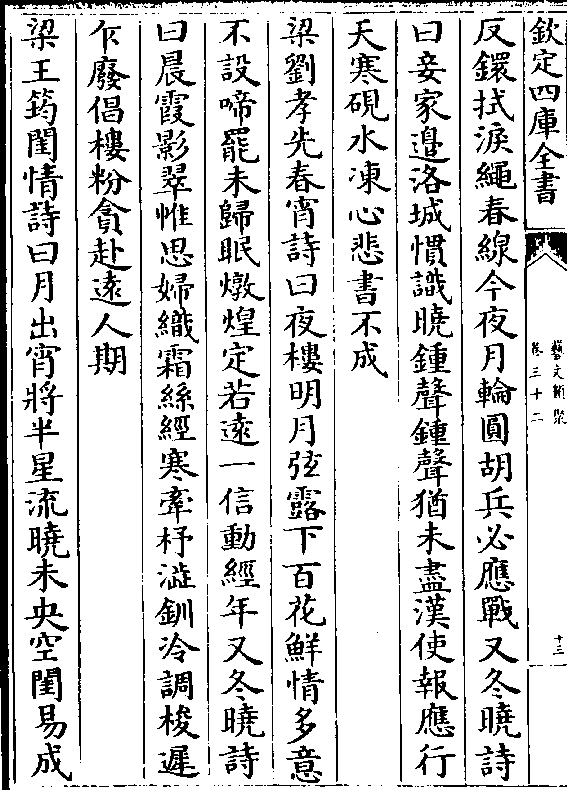 欽定四庫全書
藝文類聚
卷三十二
十三
反鐶拭淚繩春線今夜月輪圓胡兵必應戰又冬曉詩
曰妾家邉洛城慣識曉鍾聲鍾聲猶未盡漢使報應行
天寒硯水凍心悲書不成
梁劉孝先春宵詩曰夜樓明月弦露下百花鮮情多意
不設啼罷未歸眠燉煌定若逺一信動經年又冬曉詩
曰晨霞影翠帷思婦織霜絲經寒牽杼澁釧冷調梭遲
乍廢倡樓粉貪赴逺人期
梁王筠閨情詩曰月出宵將半星流曉未央空閨易成